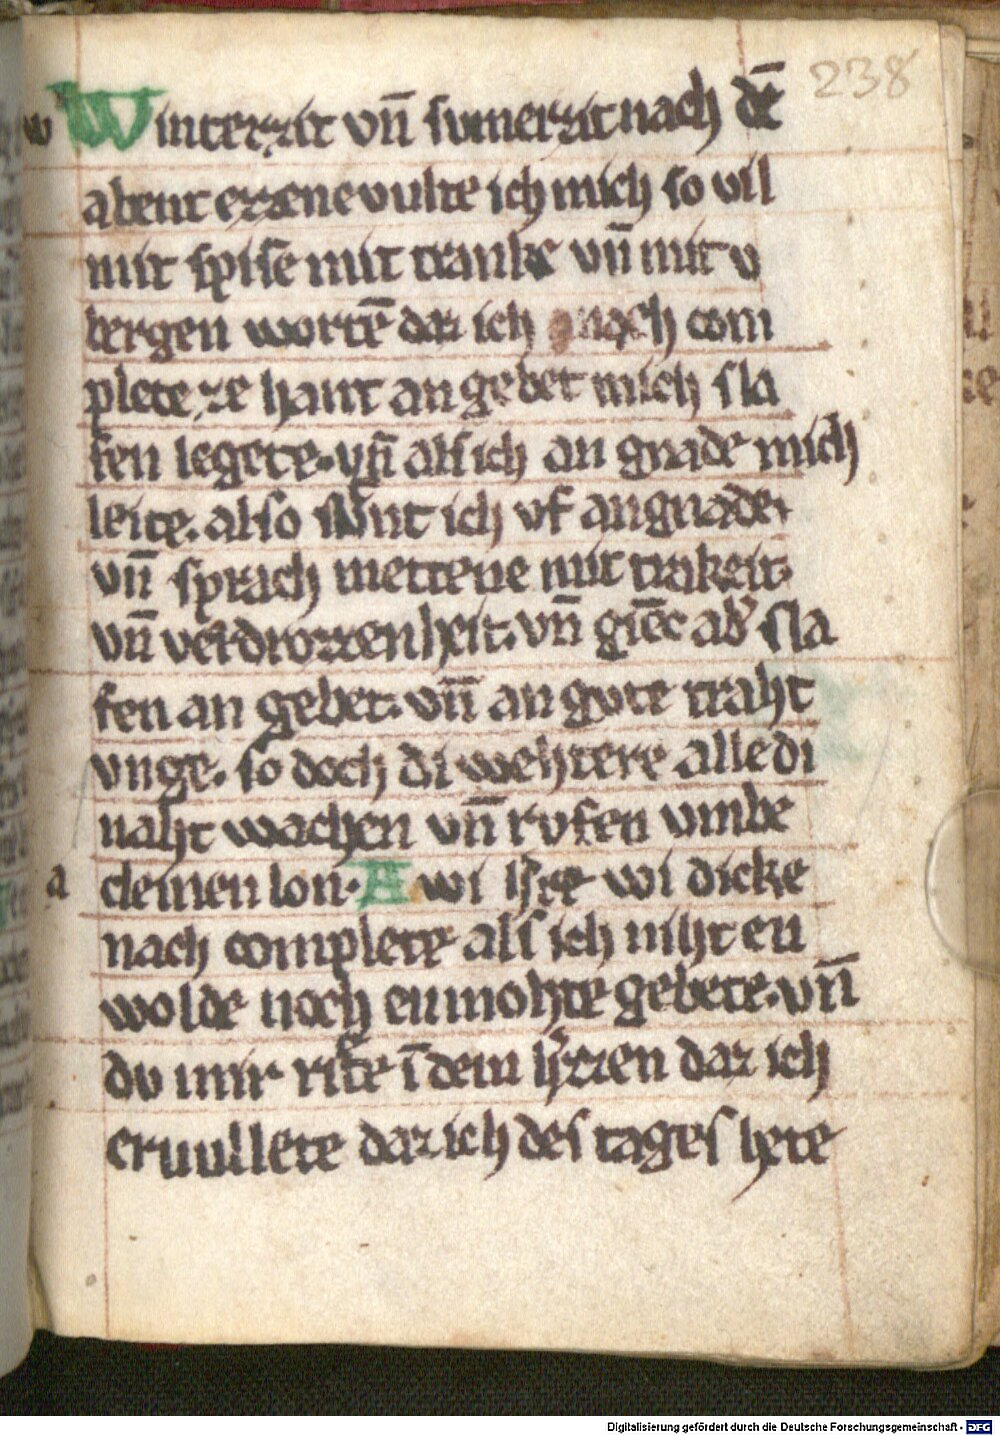 238
w Winterzit vn̄ sumerzit nach dē
abent ezzene vulte ich mich so vil
mit spise mit tranke vn̄ mit v
bergen wortē daz ich nach com
plete ze hant an gebet mich sla
fen legete. vn̄ als ich an gnade mich
leite. also stunt ich vf an gnade.
vn̄ sprach mettene mit trakeit.
vn̄ verdrozzenheit. vn̄ giēc ab̕ sla
fen an gebet. vn̄ an gvte traht
vnge. so doch di wehtere alle di
naht wachen vn̄ rvfen vmbe
a cleinen lon. Awi h̕re wi dicke
nach complete als ich niht en
wolde noch en mohte gebete. vn̄
dv mir rifte ī dem h̕rzen daz ich
ervullete daz ich des tages hete
Digitalisierung gefördert durch die Deutsche Forschungsgemeinschaft - DFG